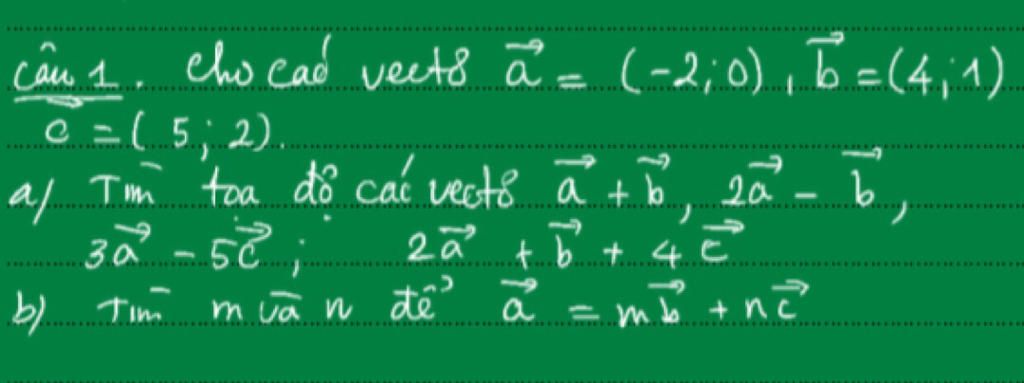 Câu 1. Cho các vectơ a⃗ = (-2; 0), b⃗ = (4; 1)
c⃗ = (5; 2).
a/ Tìm tọa độ các vectơ a⃗ + b⃗, 2a⃗ - b⃗,
3a⃗ - 5c⃗; 2a⃗ + b⃗ + 4c⃗
b) Tìm m và n để a⃗ = mb⃗ + nc⃗